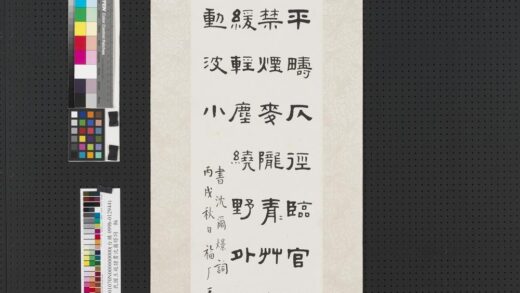 平疇仄徑臨官
禁煙麥隴青艸
緩輕塵繞野外
動波小
書沈爾燝詞
丙戌秋日福厂